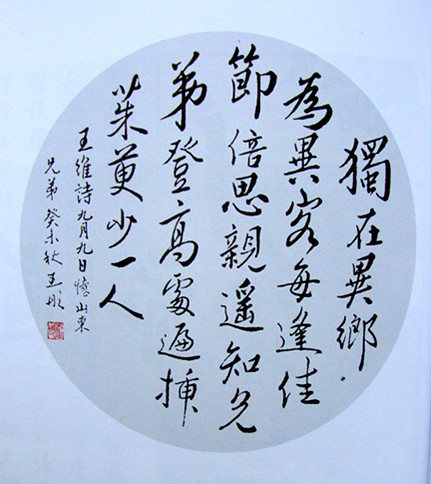 獨在異鄉
為異客每逢佳
節倍思親遥知兄
弟登高處遍插
茱萸少一人
王維詩九月九日憶山東
兄弟癸未秋王彤